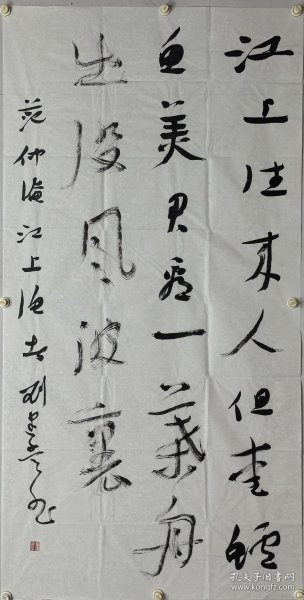 江上往来人但爱鲈
鱼美君看一叶舟
出没风波裏
范仲淹江上渔者
孔夫子旧书网